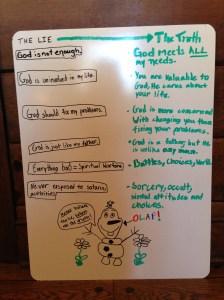 THE LIE The Truth
God is not enough.
God meets ALL
my needs.
God is uninvolved in my life.
You are valuable to
God, He cares about
your life.
God should fix my problems.
God is more concerned
with changing you than
fixing your problems.
God is just like my father.
God is a father, but He
is unlike any
Everything bad = Spiritual Warfare
Battles, Choices, World
Never exposed to satanic
activities
Sorcery, occult,
sinful attitudes and
choices.
OLAF!